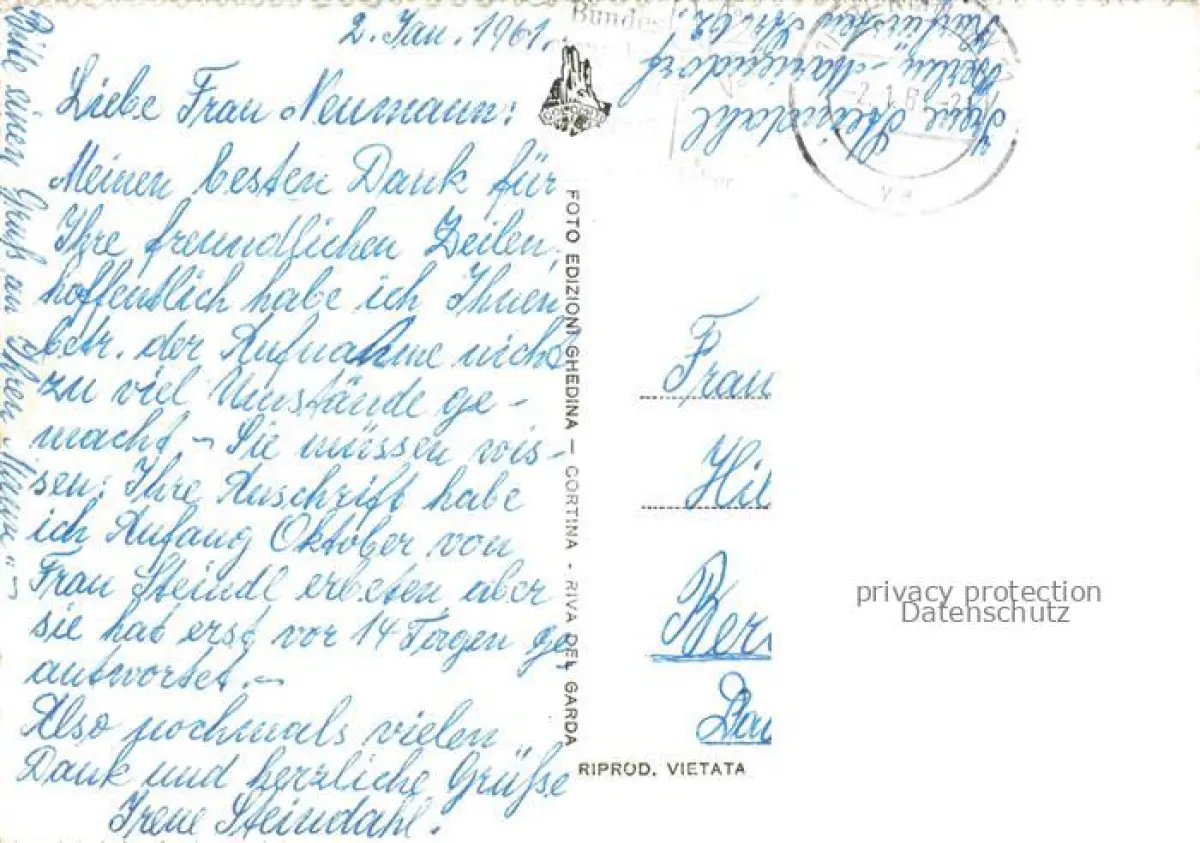 2. Jan. 1961.
Liebe Frau Neumann:
Meinen besten Dank für
Ihre freundlichen Zeilen,
hoffentlich habe ich Ihnen
betr. der Aufnahme nicht
zu viel Umstände ge-
macht. – Sie müssen wis-
sen: Ihre Anschrift habe
ich Anfang Oktober von
Frau Steindl erbeten, aber
sie hat erst vor 14 Tagen ge-
antwortet. –
Also nochmals vielen
Dank und herzliche Grüße
Irene Steindahl.
Bitte einen Gruß an Ihren
FOTO EDIZIONI GHEDINA – CORTINA - RIVA DEL GARDA
RIPROD. VIETATA
Irene Steindahl
Berlin-Mariendorf
Bundes
Frau
Hil
Ber
Dau
privacy protection
Datenschutz